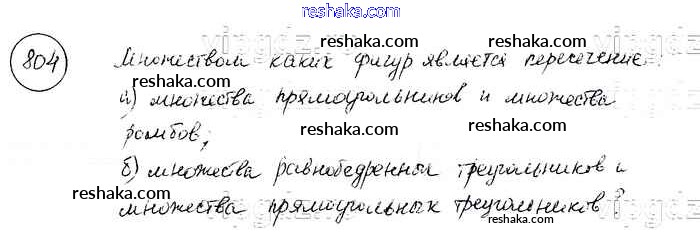 reshaka.com
804 Множеством каких фигур является пересечение:
reshaka.com reshaka.com
а) множества прямоугольников и множества
reshaka.com reshaka.com
ромбов;
б) множества равнобедренных треугольников и
reshaka.com reshaka.com
множества прямоугольных треугольников?
reshaka.com